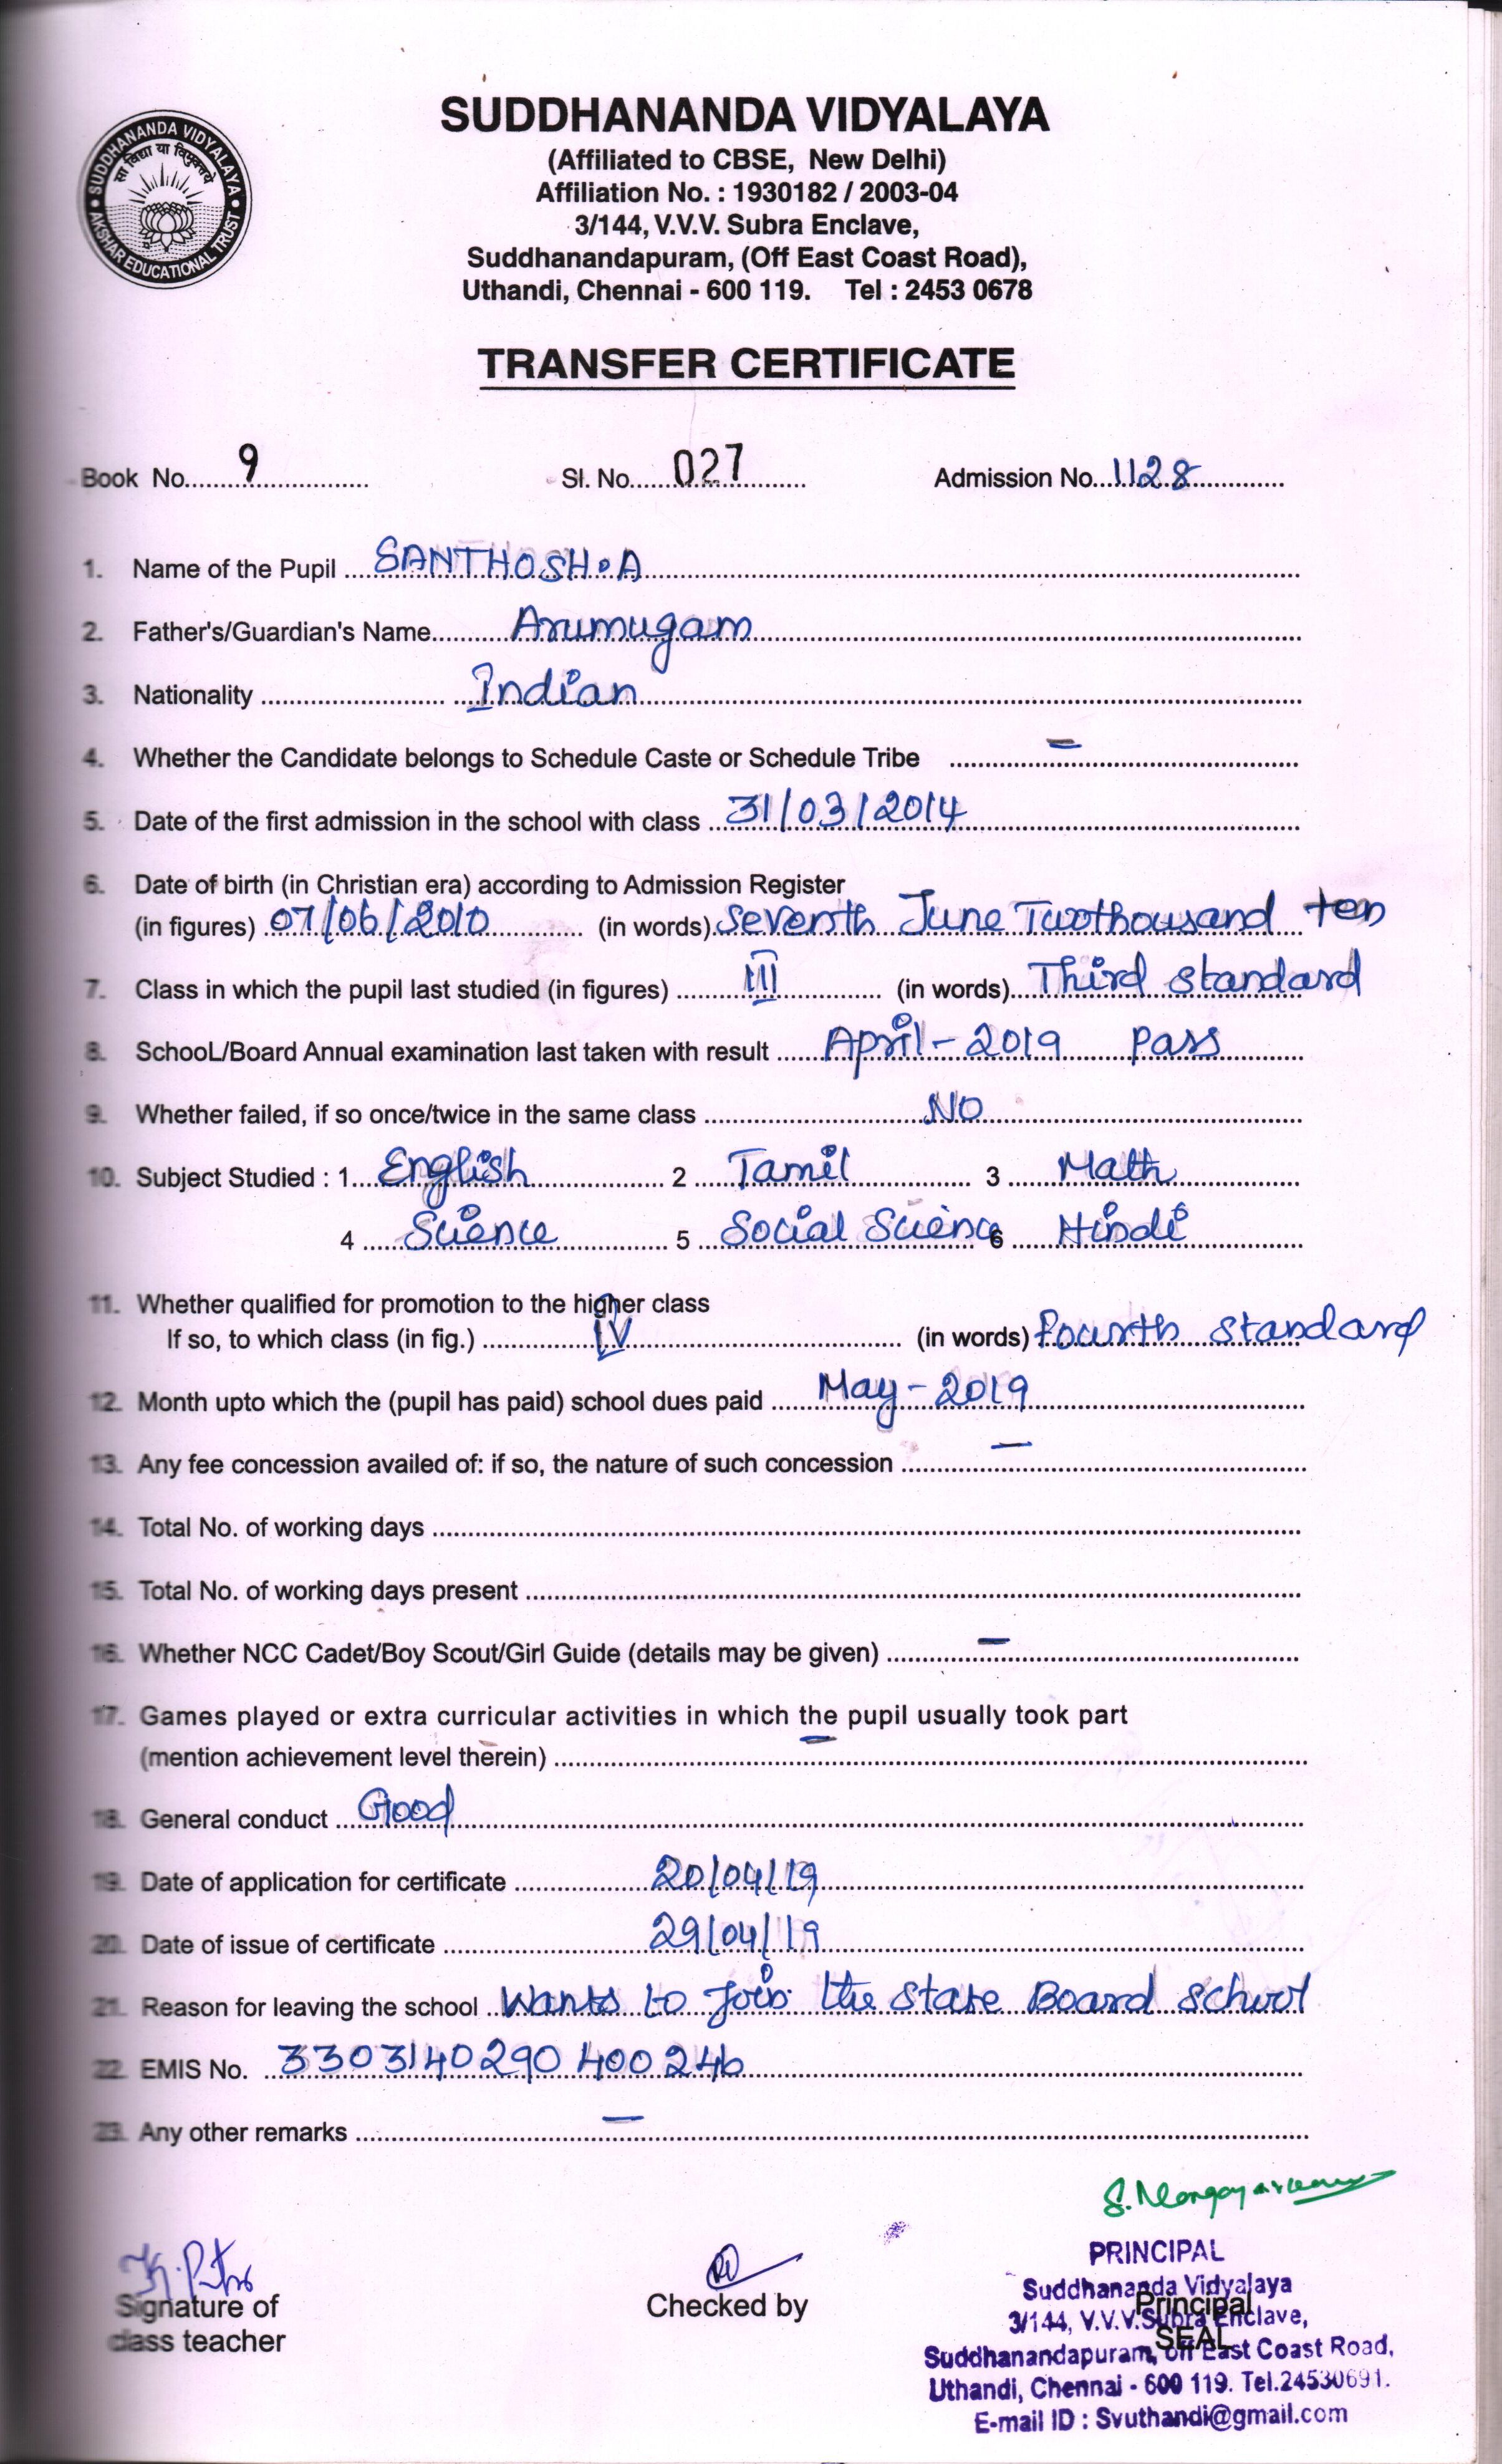 SUDDHANANDA VIDYALAYA
(Affiliated to CBSE, New Delhi)
Affiliation No. : 1930182 / 2003-04
3/144, V.V.V. Subra Enclave,
Suddhanandapuram, (Off East Coast Road),
Uthandi, Chennai - 600 119. Tel : 2453 0678
SUDDHANANDA VIDYALAYA
सा विद्या या विमुक्तये
AKSHAR EDUCATIONAL TRUST
TRANSFER CERTIFICATE
Book No. 9 Sl. No. 027 Admission No. 1128
1. Name of the Pupil SANTHOSH.A
2. Father's/Guardian's Name Arumugam
3. Nationality Indian
4. Whether the Candidate belongs to Schedule Caste or Schedule Tribe –
5. Date of the first admission in the school with class 31/03/2014
6. Date of birth (in Christian era) according to Admission Register
(in figures) 07/06/2010 (in words) Seventh June Twothousand ten
7. Class in which the pupil last studied (in figures) III (in words) Third Standard
8. SchooL/Board Annual examination last taken with result April - 2019 Pass
9. Whether failed, if so once/twice in the same class NO
10. Subject Studied : 1 English 2 Tamil 3 Math
4 Science 5 Social Science 6 Hindi
11. Whether qualified for promotion to the higher class
If so, to which class (in fig.) IV (in words) Fourth Standard
12. Month upto which the (pupil has paid) school dues paid May - 2019
13. Any fee concession availed of: if so, the nature of such concession –
14. Total No. of working days
15. Total No. of working days present
16. Whether NCC Cadet/Boy Scout/Girl Guide (details may be given) –
17. Games played or extra curricular activities in which the pupil usually took part
(mention achievement level therein) –
18. General conduct Good
19. Date of application for certificate 20/04/19
20. Date of issue of certificate 29/04/19
21. Reason for leaving the school Wants to join the State Board School
22. EMIS No. 3303140290400246
23. Any other remarks –
Signature of
class teacher
Checked by
Principal
SEAL
PRINCIPAL
Suddhananda Vidyalaya
3/144, V.V.V.Subra Enclave,
Suddhanandapuram, off East Coast Road,
Uthandi, Chennai - 600 119. Tel.24530691.
E-mail ID : Svuthandi@gmail.com